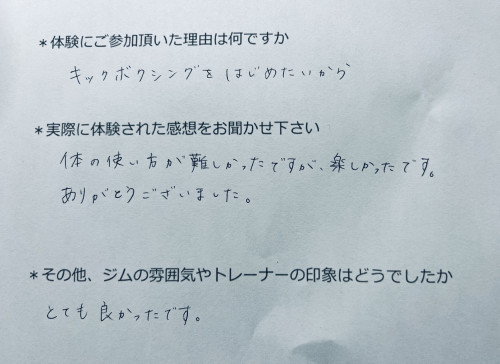 ＊体験にご参加頂いた理由は何ですか
キックボクシングをはじめたいから
＊実際に体験された感想をお聞かせ下さい
体の使い方が難しかったですが、楽しかったです。
ありがとうございました。
＊その他、ジムの雰囲気やトレーナーの印象はどうでしたか
とても良かったです。